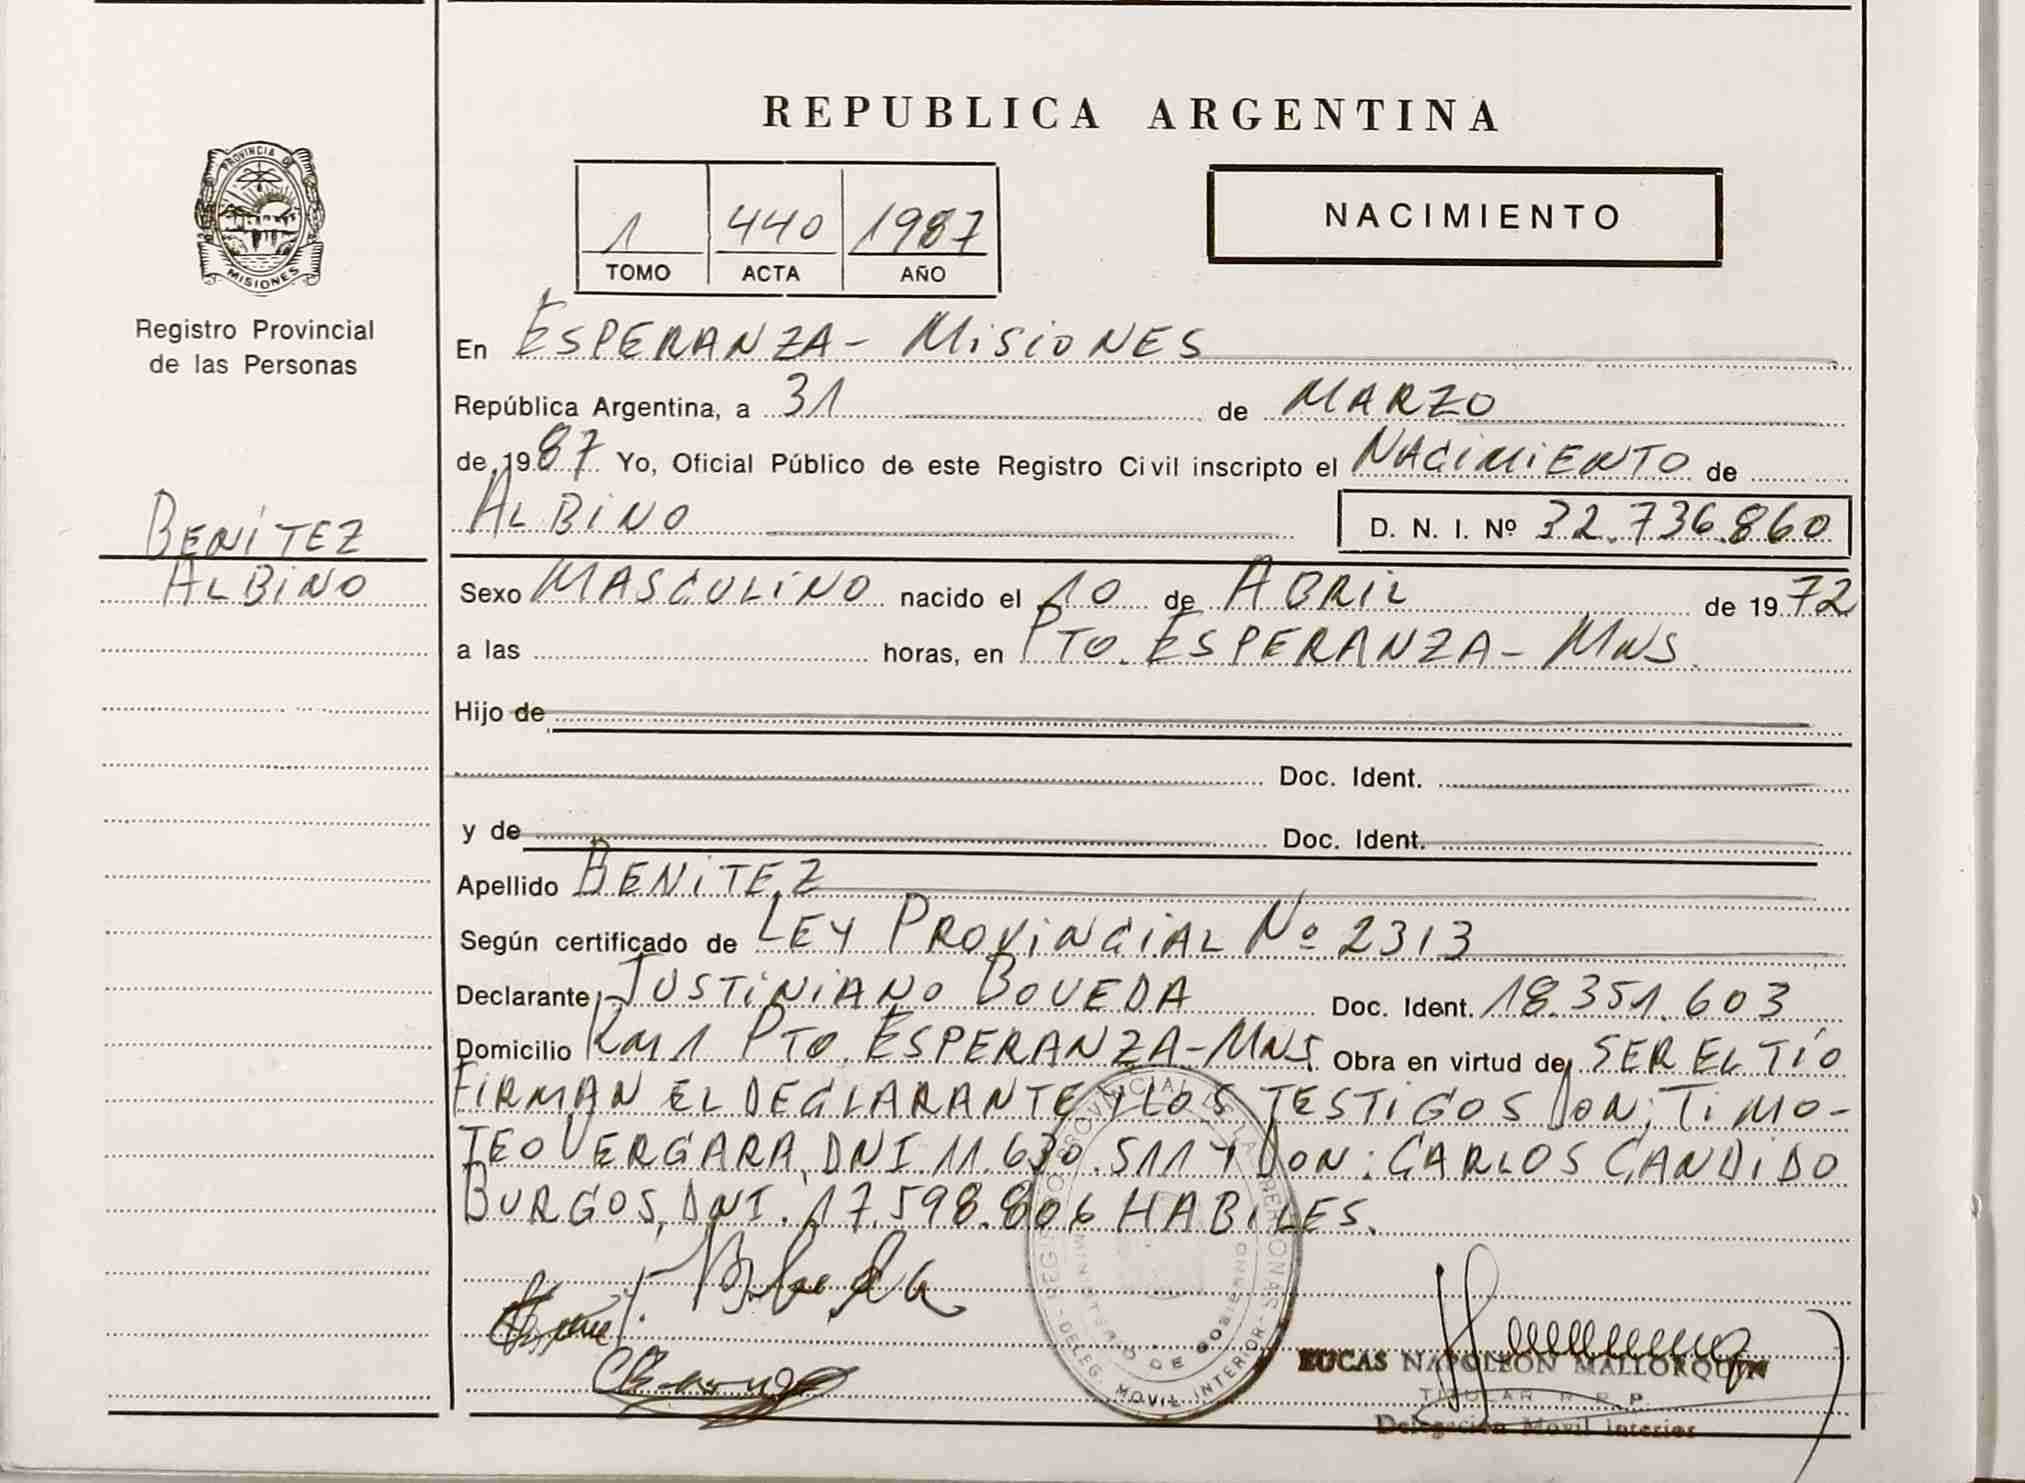 REPUBLICA ARGENTINA
PROVINCIA DE
MISIONES
Registro Provincial
de las Personas
BENÍTEZ
ALBINO
1 440 1987
TOMO ACTA AÑO
NACIMIENTO
En ESPERANZA - MISIONES
República Argentina, a 31 de MARZO
de 1987 Yo, Oficial Público de este Registro Civil inscripto el NACIMIENTO de
ALBINO D. N. I. Nº 32.736.860
Sexo MASCULINO nacido el 10 de ABRIL de 1972
a las horas, en PTO. ESPERANZA - MNS.
Hijo de
Doc. Ident.
y de Doc. Ident.
Apellido BENITEZ
Según certificado de LEY PROVINCIAL Nº 2313
Declarante JUSTINIANO BOVEDA Doc. Ident. 18.351.603
Domicilio KM 1 PTO. ESPERANZA - MNS. Obra en virtud de SER EL TÍO
FIRMAN EL DECLARANTE Y LOS TESTIGOS DON; TIMO-
TEO VERGARA, DNI 11.630.511 Y DON: CARLOS CANDIDO
BURGOS, DNI. 17.598.806 HABILES.
REGISTRO PROVINCIAL DE LAS PERSONAS
MINISTERIO DE GOBIERNO
- DELEG. MOVIL INTERIOR -
LUCAS NAPOLEON MALLORQUIN
TITULAR R. P. P.
Delegación Movil Interior